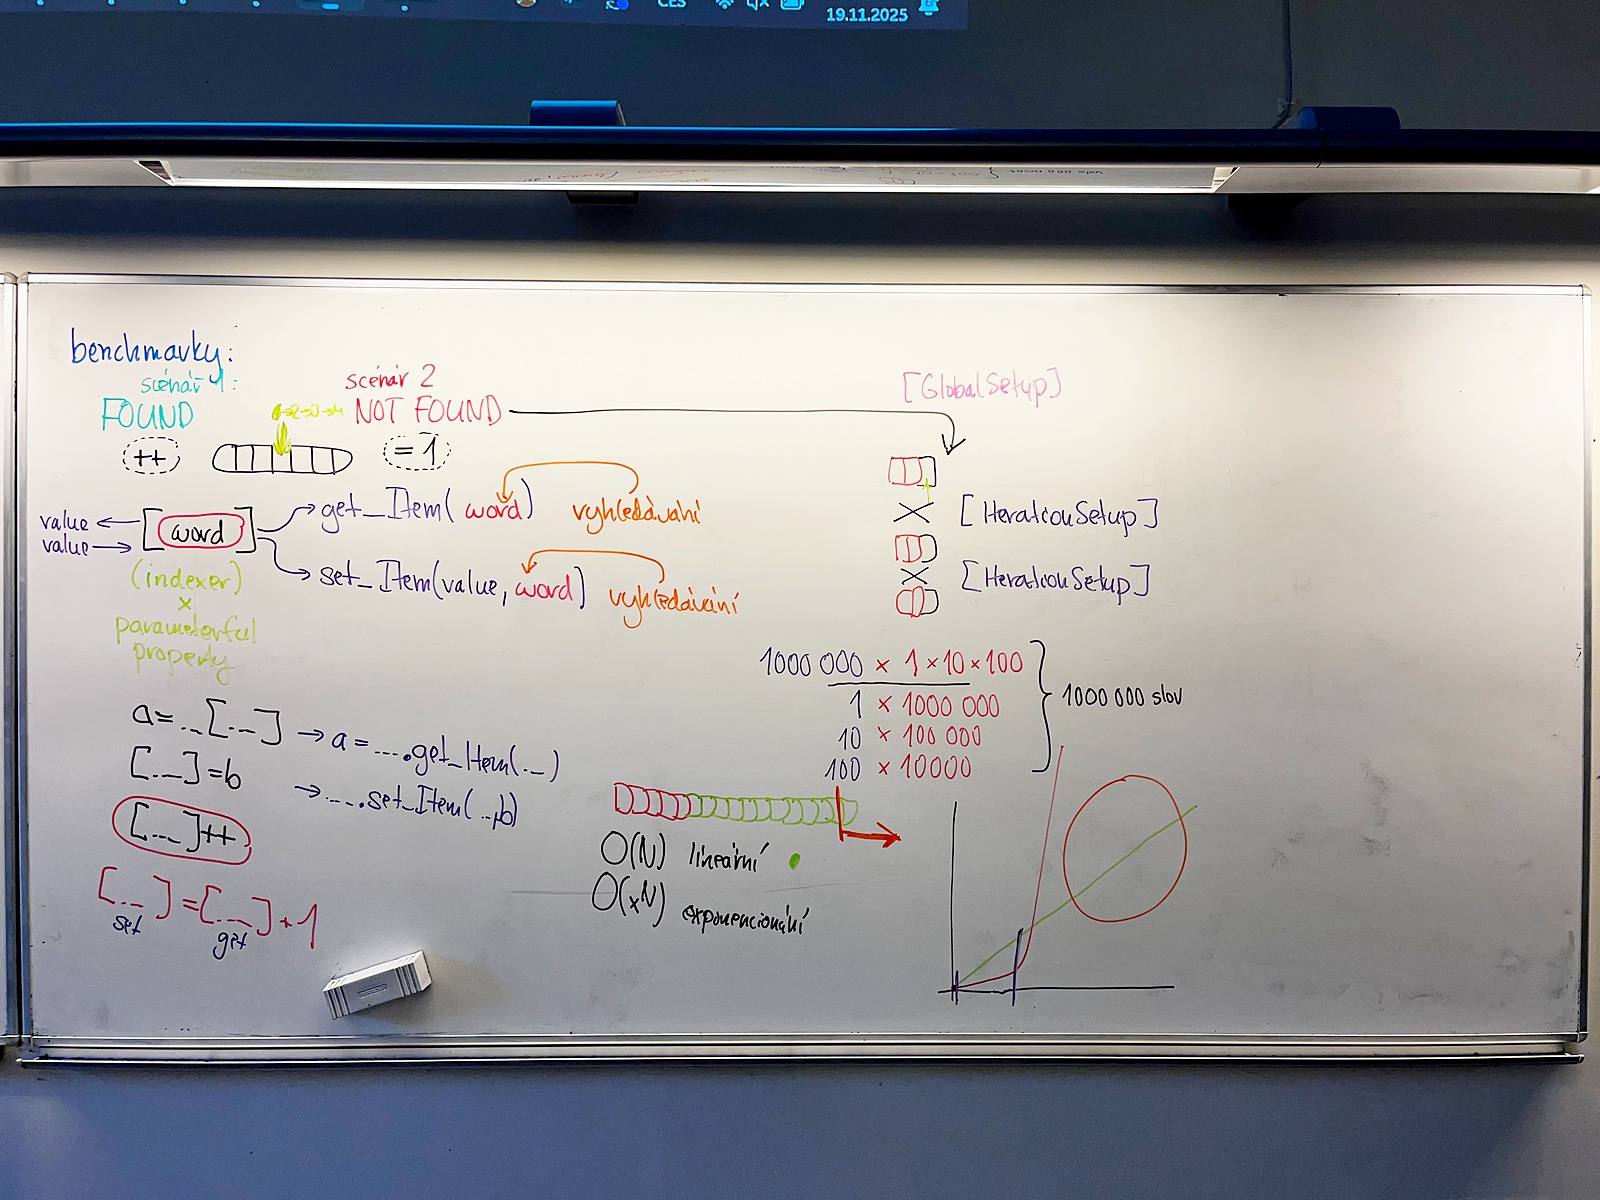 CES
19.11.2025
benchmarky:
scénář 1:
FOUND
++
1→2→3→4
scénář 2
NOT FOUND
= 1
value
value
[word]
(indexer)
×
parameterful
property
get_Item(word) vyhledávání
set_Item(value, word) vyhledávání
a=...[...] → a = ....get_Item(...)
[...]=b → ....set_Item(..,b)
[...]++
[...]=[...]+1
set
get
[GlobalSetup]
[IterationSetup]
[IterationSetup]
1000 000 × 1 × 10 × 100
1 × 1000 000
10 × 100 000
100 × 10000
1000 000 slov
O(N) lineární
O(xN) exponencionální